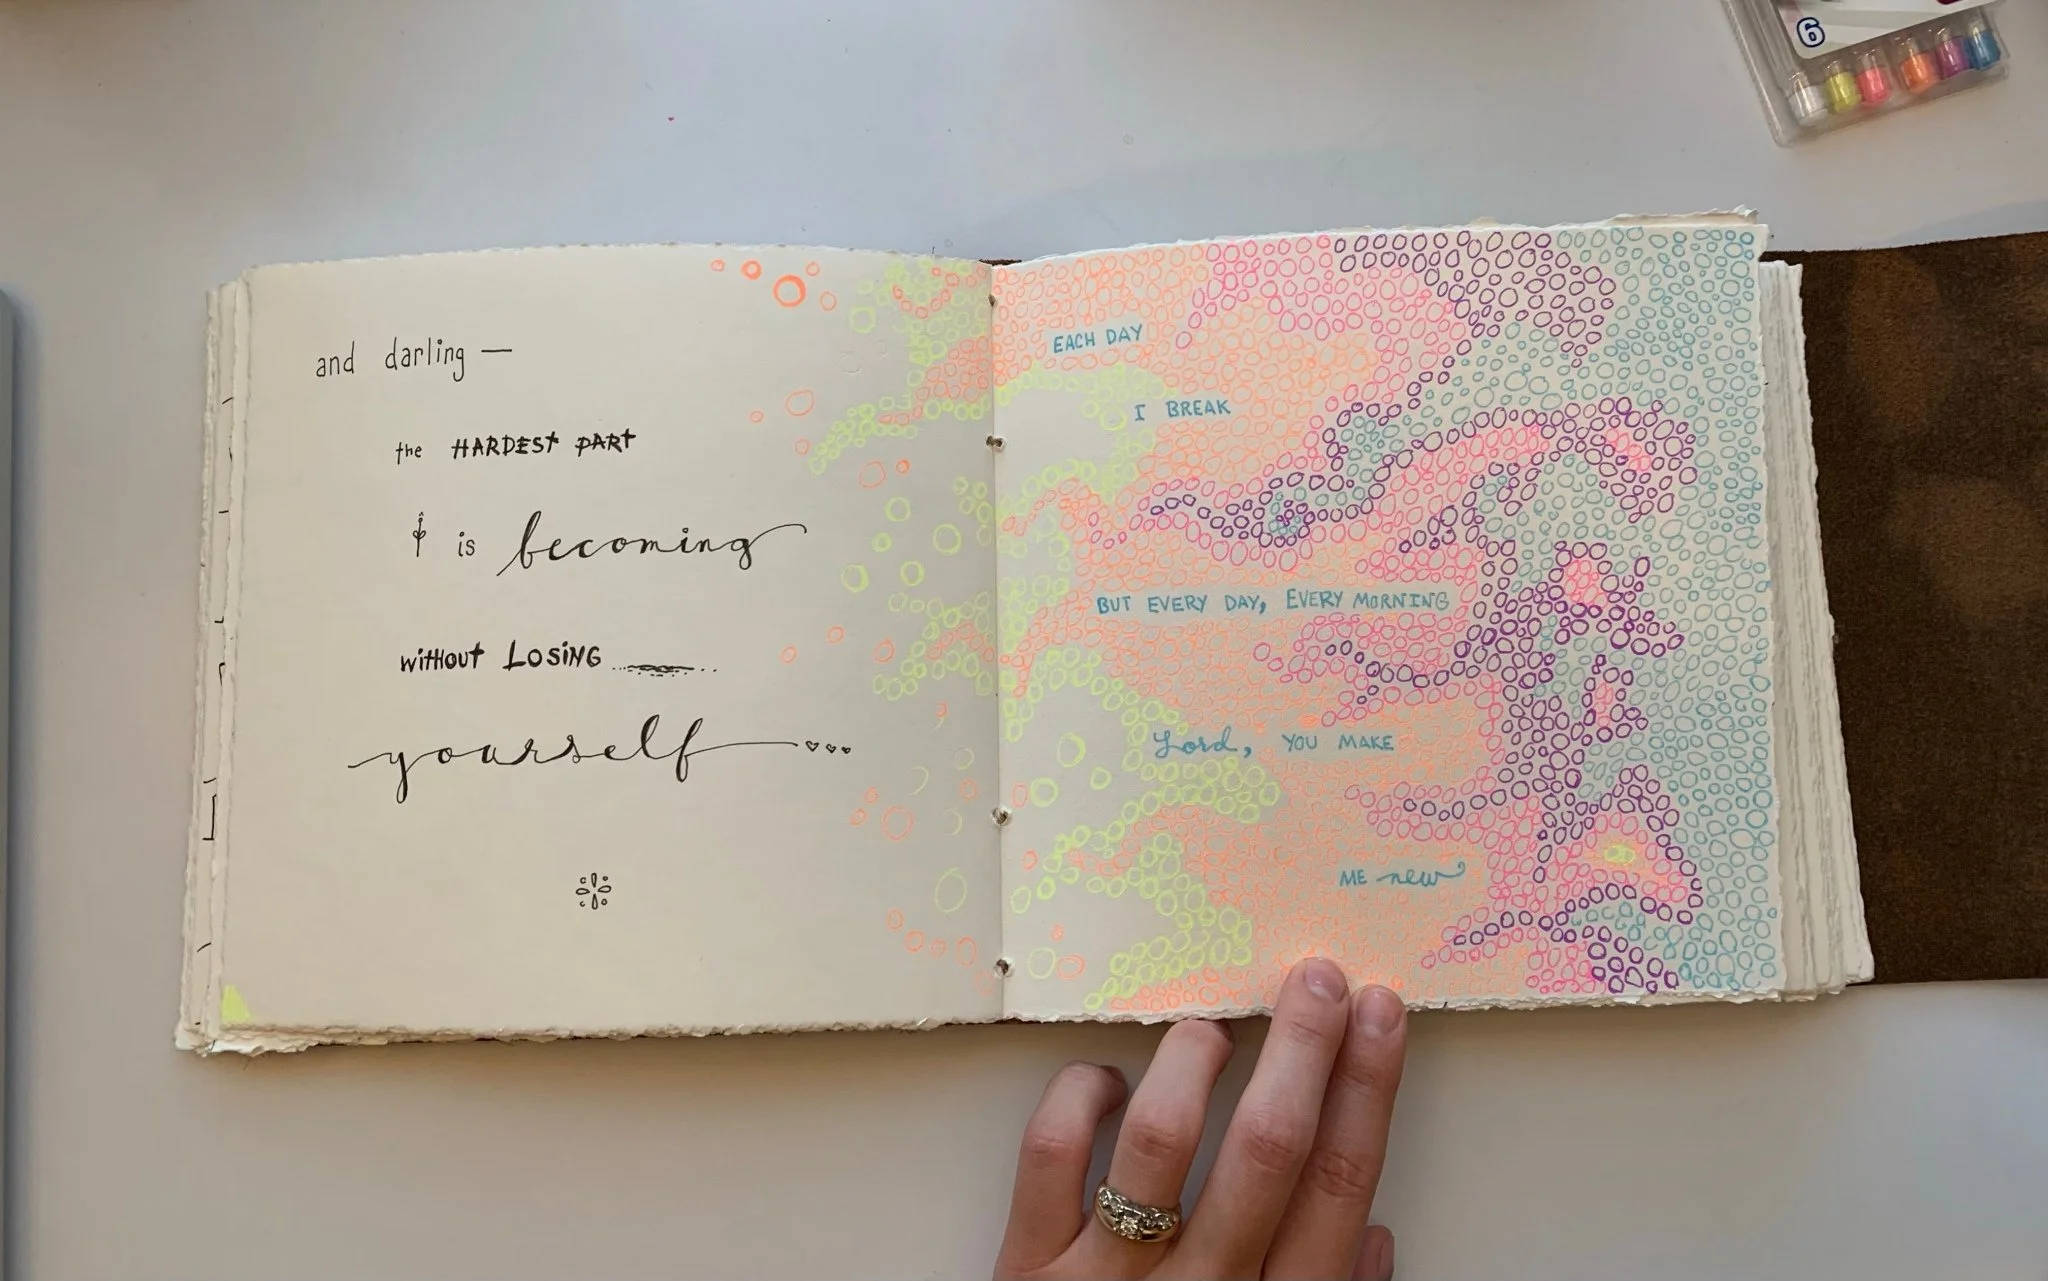 and darling —
the HARDEST PART
is becoming
without LOSING
yourself
EACH DAY
I BREAK
BUT EVERY DAY, EVERY MORNING
Lord, YOU MAKE
ME new
6